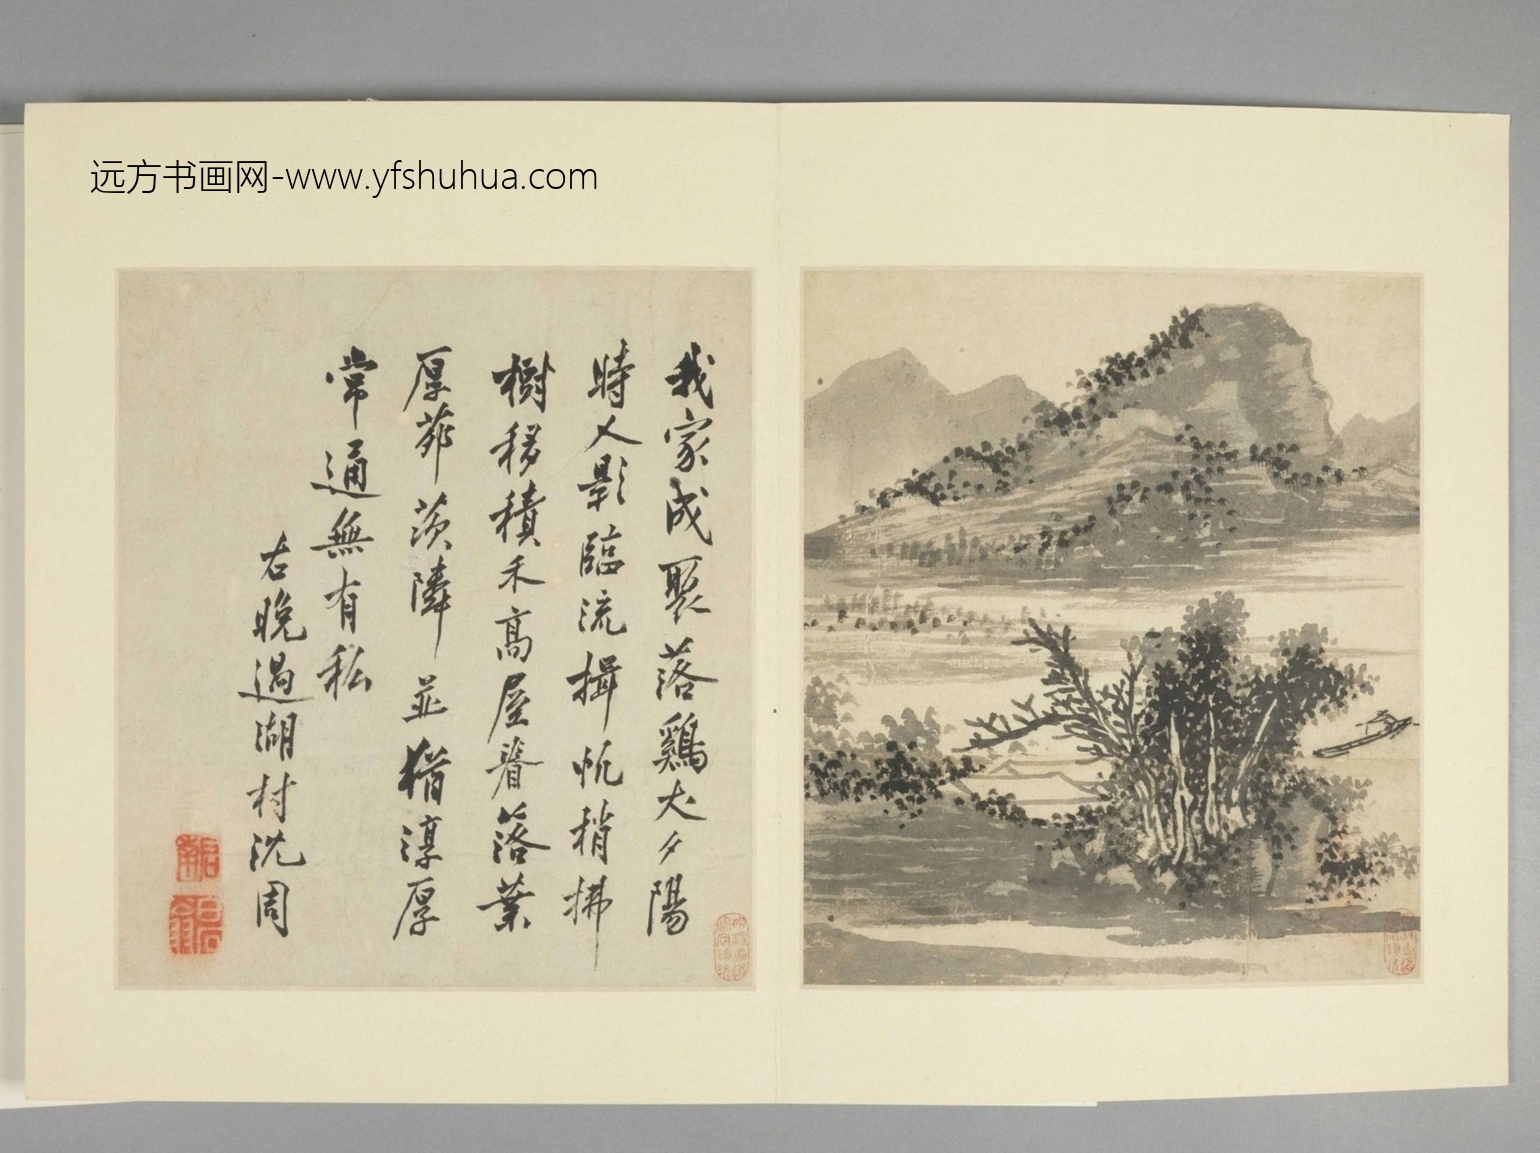 远方书画网-www.yfshuhua.com
我家成聚落鷄犬夕陽
時人影臨流揖帆梢拂
樹移積禾高屋脊落葉
厚茆茨隣並猶淳厚
常通無有私
右晚過湖村沈周
啟南
白石翁